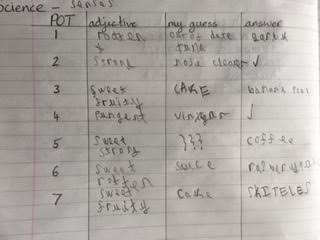 Science - senses
POT adjective my guess answer
1 rotten out of date
tuna
2 strong nose clearer ✓
3 sweet CAKE banana
fruity
4 pungent vinegar ✓
5 sweet }}} coffee
strong
6 sweet
rotten
7 sweet cake SKITELES
fruity